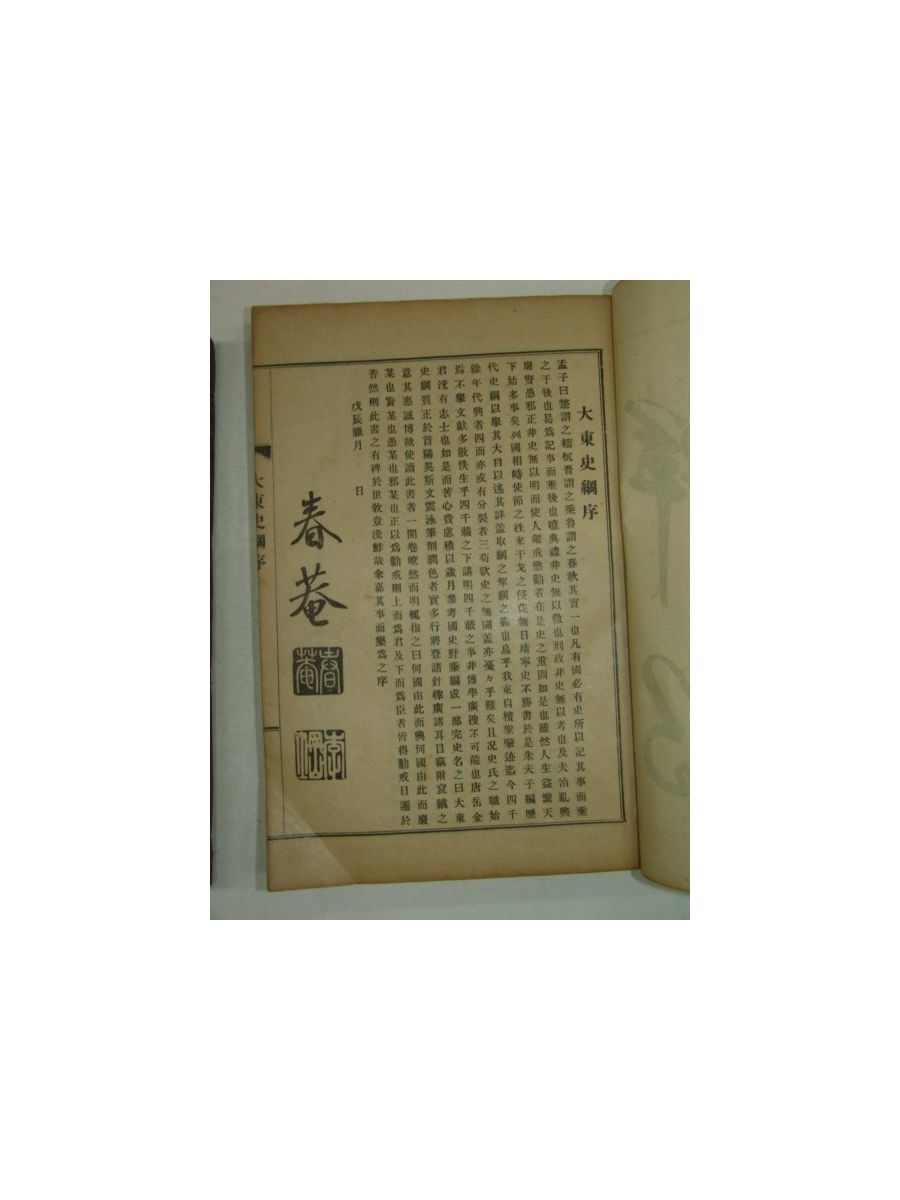 大東史綱序
孟子曰楚謂之檮杌晋謂之乘魯謂之春秋其實一也凡有國必有史所以記其事而垂
之于後也曷爲記事而垂後也噫典禮非史無以徵也刑政非史無以考也及夫治亂興
廢賢愚邪正非史無以明而使人鑑戒懲勸者在是史之重固如是也雖然人生益繁天
下始多事矣列國相峙使節之往來干戈之侵伐無日靖寧史不勝書於是朱夫子編歷
代史綱以擧其大目以述其詳盖取綱之擧綱之義也烏乎我東自檀聖肇迹迄今四千
餘年代興者四而亦或有分裂者三苟欲史之無闕盖亦戞々乎難矣且况史氏之職始
焉不擧文獻多散佚生乎四千載之下講明四千載之事非博學廣搜不可能也唐岳金
君洸有志士也如是而苦心費慮積以歲月參考國史野乘編成一部完史名之曰大東
史綱質正於首陽吳斯文震泳筆削潤色者實多行將登諸針梓廣諸耳目竊附袞鉞之
意其惠誠博哉使讀此書者一開卷瞭然而明輒指之曰何國由此而興何國由此而廢
某也賢某也愚某也邪某也正以爲勸戒則上而爲君及下而爲臣者皆得勸戒日遷於
善然則此書之有裨於世敎豈淺鮮哉余嘉其事而樂爲之序
戊辰臘月　日
春菴
春菴
大東史綱序